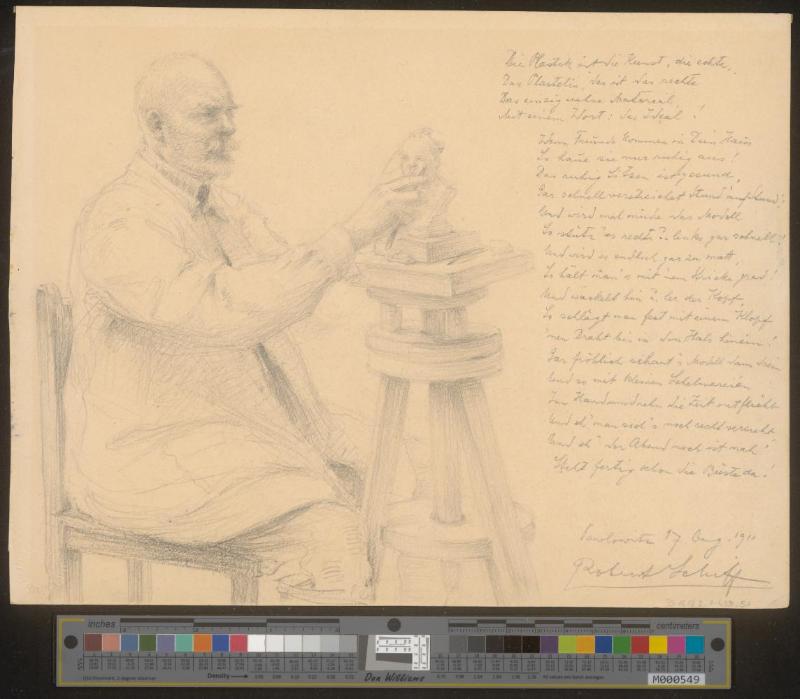 Die Plastik ist die Kunst, die echte,
Das Plastelin, das ist das rechte
Das einzig wahre Material,
Mit einem Wort: das Ideal!
Wenn Freunde kommen in Dein Haus
So haue sie nur ruhig aus!
Das ruhig Sitzen ist gesund,
Gar schnell verstreichet Stund' auf Stund'!
Und wird mal müde das Modell
So stützt es rechts & links gar schnell!
Und wird es endlich gar zu matt,
So hält man's mit
Und wackelt hin & her der Kopf,
So schlägt man fest mit einem Klopf
'nen Draht bis in den Hals hinein!
Gar fröhlich schaut's Modell dann drein
Und so mit kleinen Schelmereien
Im Handumdrehn die Zeit entflieht
Und eh' man sich's noch recht versieht
Und eh' der Abend noch ist nah'
Steht fertig schon die Büste da!
17 Aug. 1911
Robert Schiff
inches
centimeters
Density
Don Williams
M000549